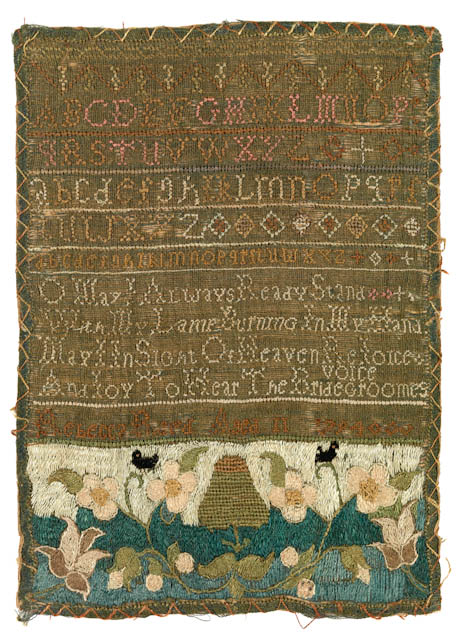 ABCDEFGHIKLMNOP
qRSTUVWXYZ
abcdefghiklmnoPqr
Z
abcdefghiklmnopqrstuwxyz
O May I Always Ready Stand
With My Lamp Burning In My Hand
May I In Sight Of Heaven Rejoice
voice
And Joy To Hear The Bridegroomes
11